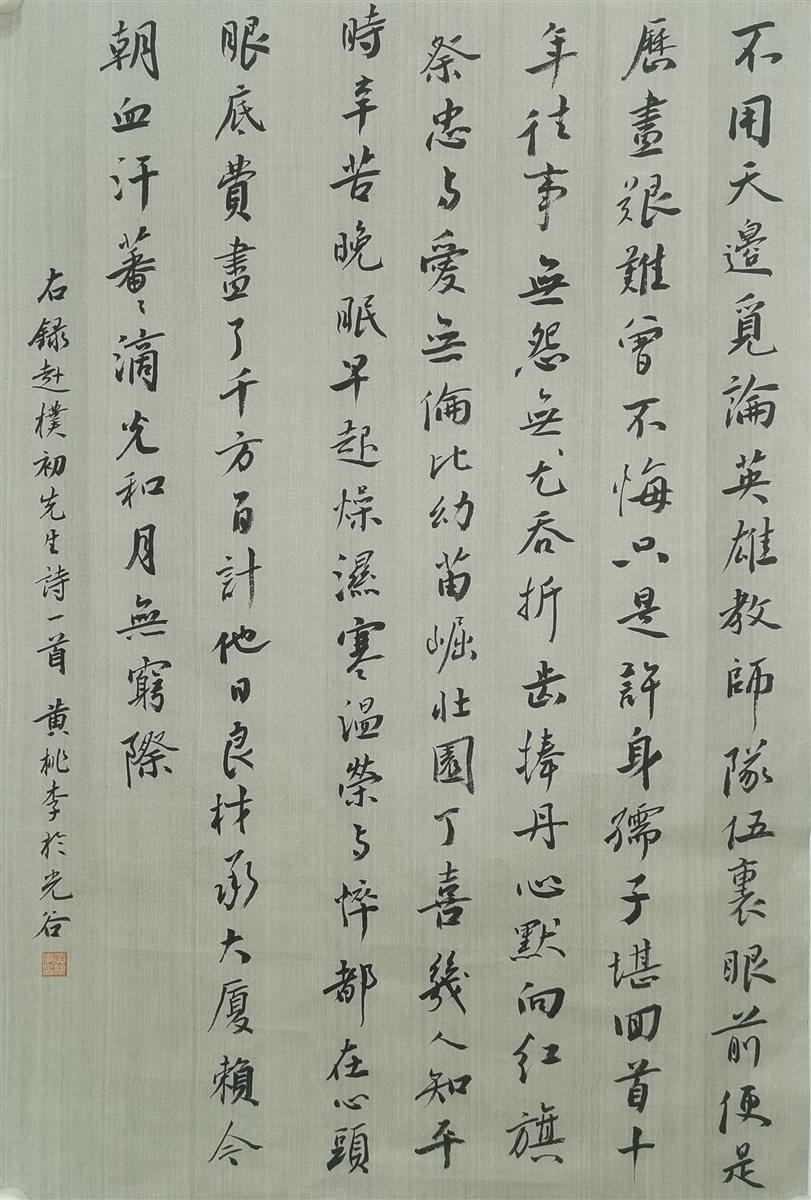 不用天邊覓論英雄教師隊伍裏眼前便是
歷盡艱難曾不悔只是許身孺子堪囬首十
年往事無怨無尤吞折齒捧丹心默向红旗
祭忠与愛無倫比幼苗崛壯園丁喜幾人知平
時辛苦晚眠早起燥濕寒温榮与悴都在心頭
眼底費盡了千方百計他日良材承大廈賴今
朝血汗蕃〻滴光和月無窮際
右録赵樸初先生詩一首 黄桃李於光谷